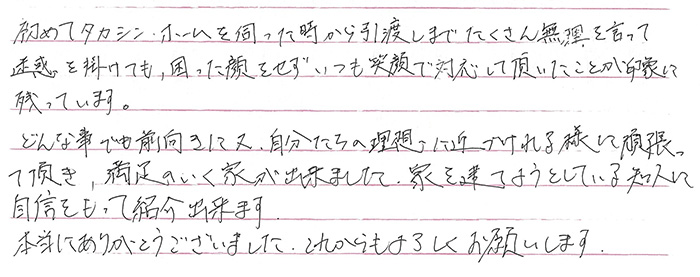 初めてタカシン・ホームを伺った時から引渡しまでたくさん無理を言って
迷惑を掛けても、困った顔をせずいつも笑顔で対応して頂いたことが印象に
残っています。
どんな事でも前向きに又、自分たちの理想に近づけれる様に頑張っ
て頂き、満足のいく家が出来ました。家を建てようとしている知人に
自信をもって紹介出来ます。
本当にありがとうございました。これからもよろしくお願いします。